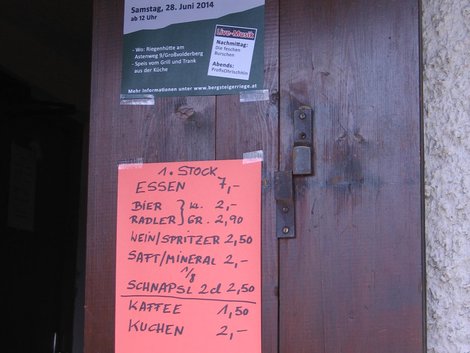 Samstag, 28. Juni 2014
ab 12 Uhr
Live-Musik
Nachmittag:
Die feschen
Burschen
Abends:
- Wo: Riegenhütte am
Astenweg 9/Großvolderberg
Speis vom Grill und Trank
aus der Küche
Mehr Informationen unter www.bergsteigerriege.at
1. STOCK
ESSEN 7,-
BIER } kl. 2,-
RADLER } GR. 2,90
WEIN/SPRITZER 2,50
SAFT/MINERAL 2,-
1/8
SCHNAPSL 2cl 2,50
KAFFEE 1,50
KUCHEN 2,-